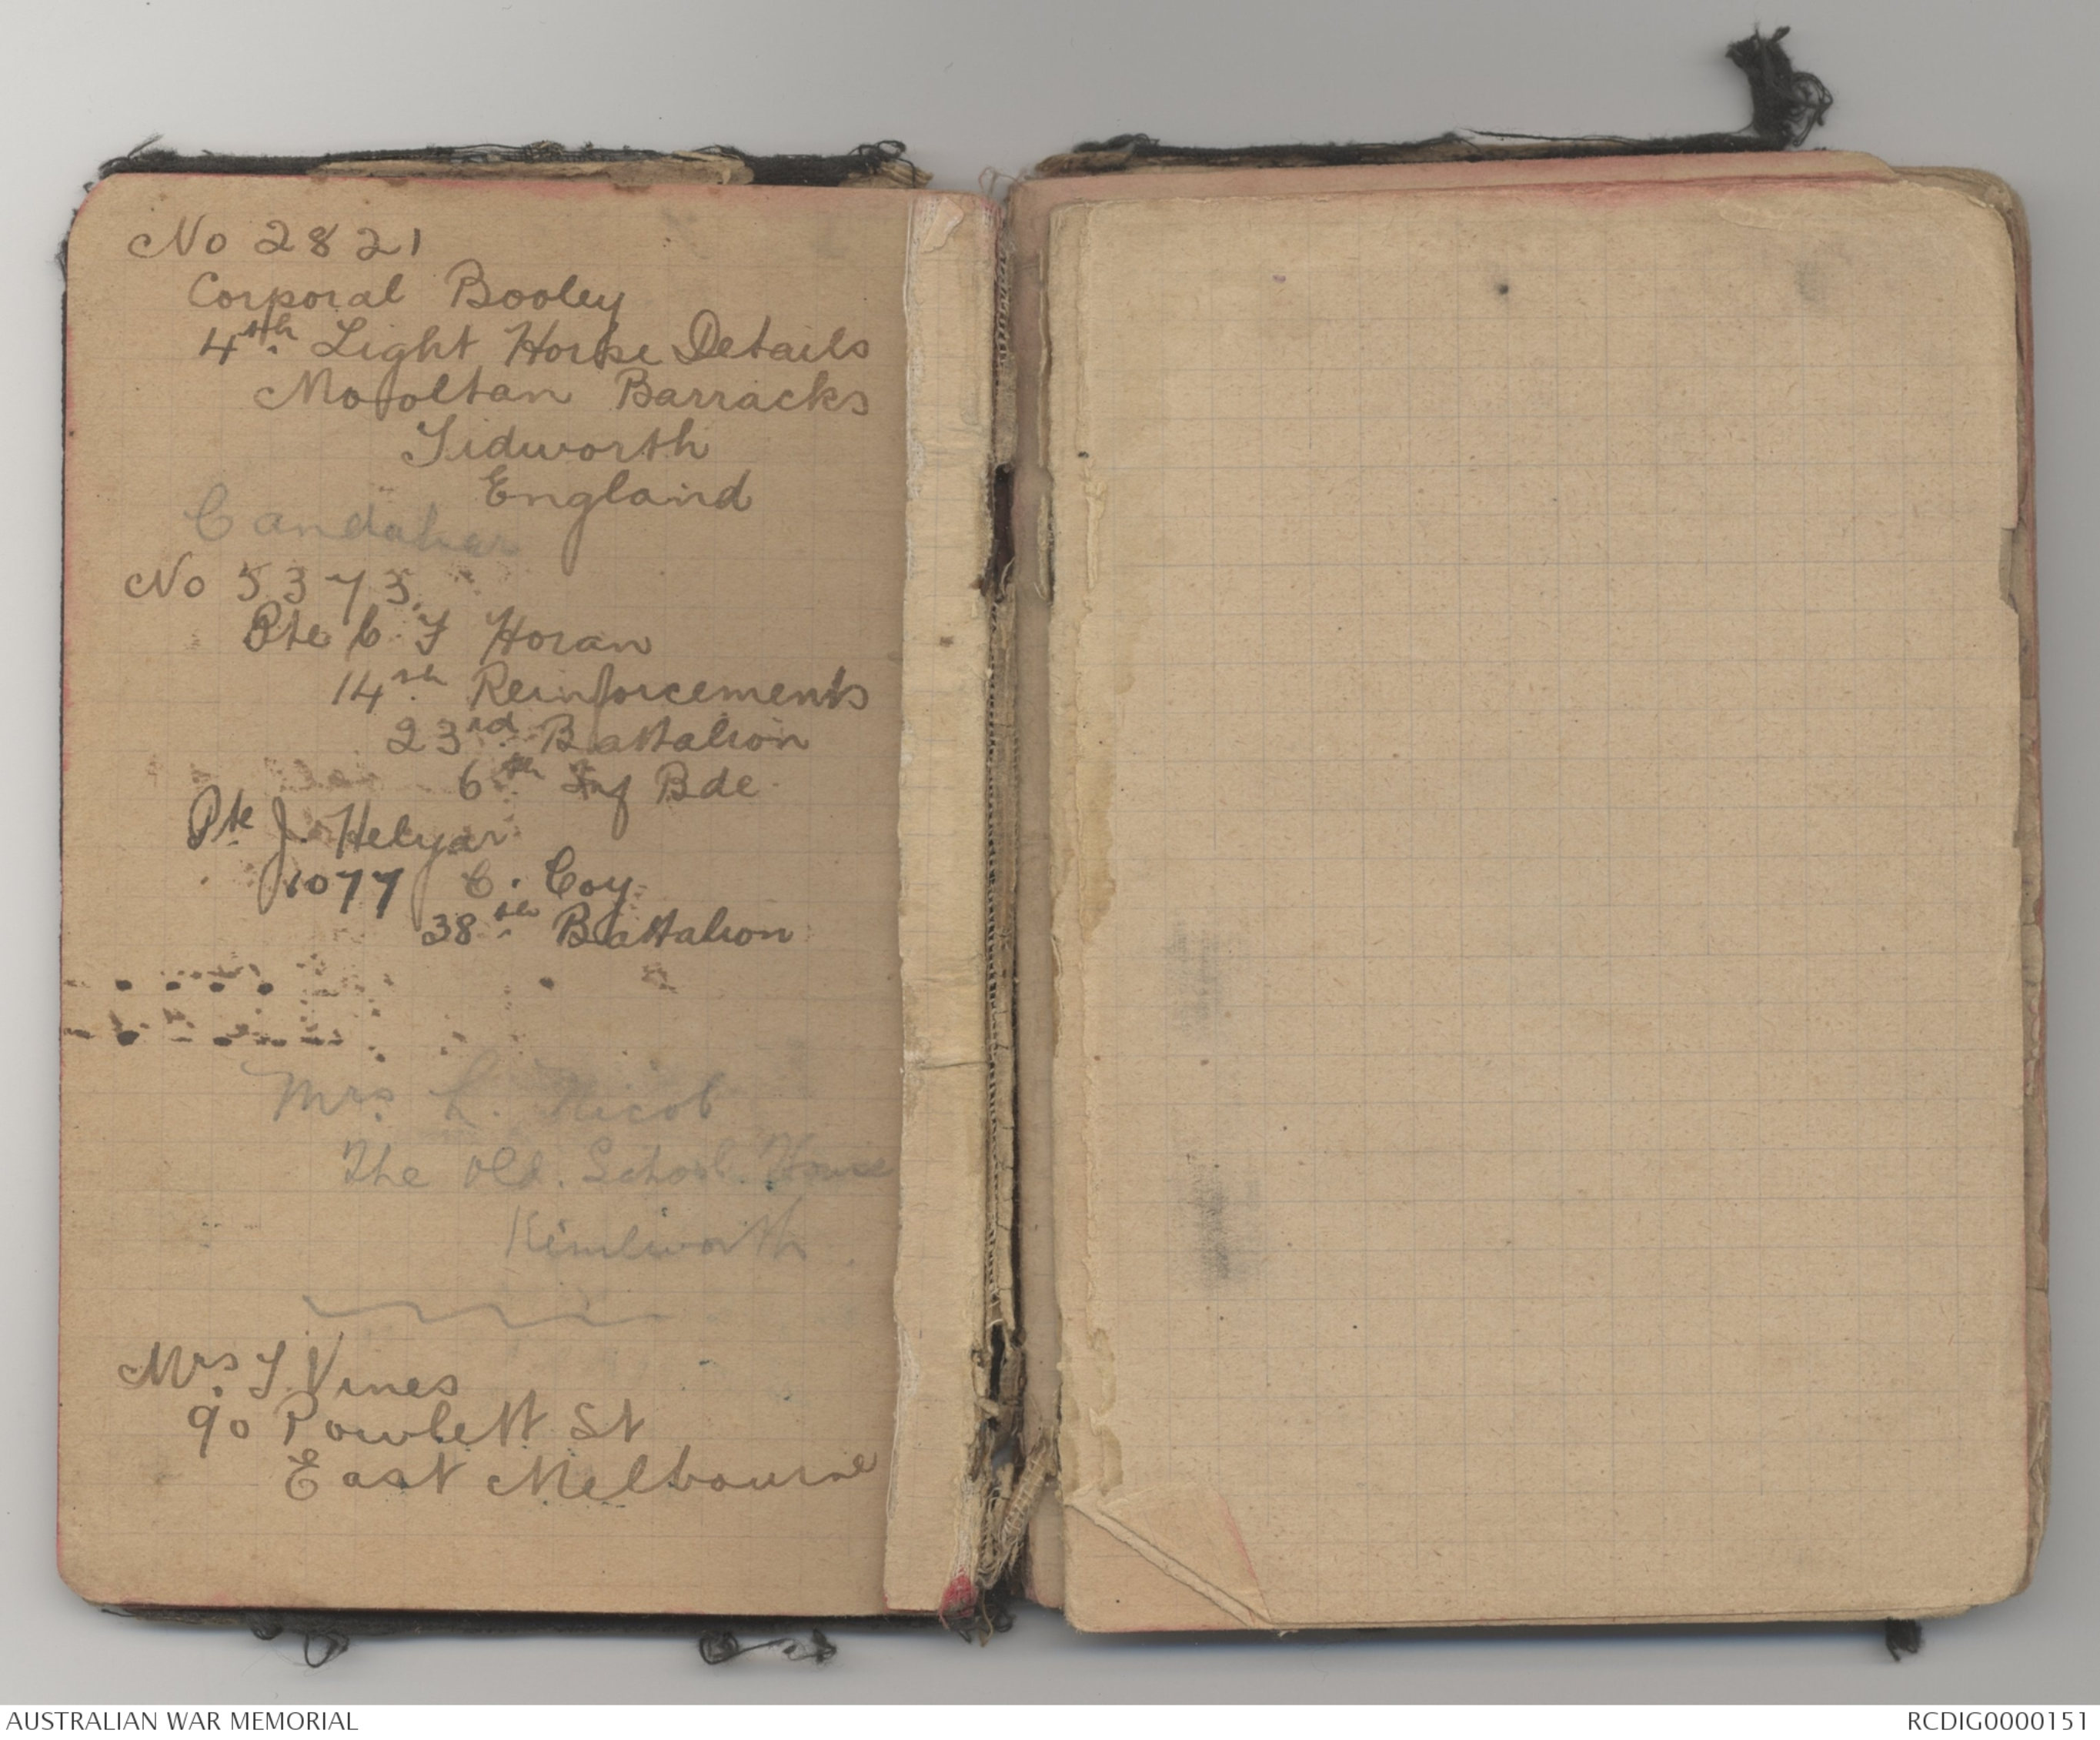 No 2821
Corporal Booley
4th. Light Horse Details
Mooltan Barracks
Tidworth
England
Candahar
No 5373.
Pte C. F Horan
14th. Reinforcements
23rd. Battalion
6th Inf Bde.
Pte J. Helyar
1077 C. Coy.
38th. Battalion
Mrs. L. Nicol
The Old. School. House
Mrs. J. Vines
90 Powlett St
East Melbourne
AUSTRALIAN WAR MEMORIAL
RCDIG0000151